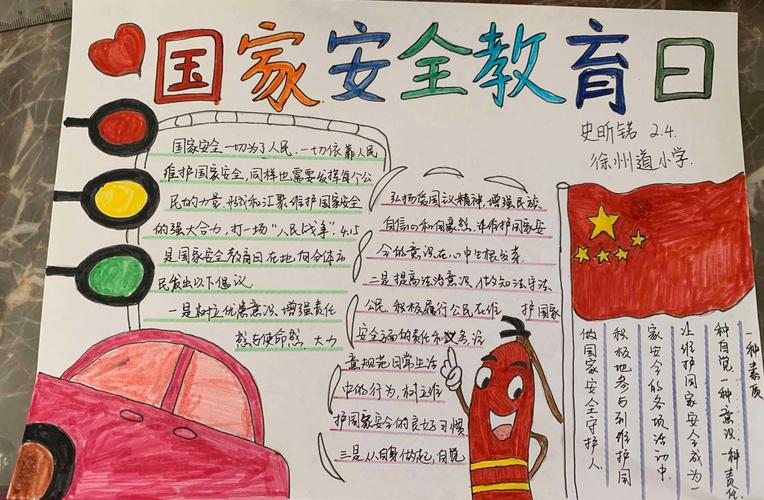 国家安全教育日
史昕锘 2.4.
徐州道小学.
国家安全一切为了人民,一切依靠人民
维护国家安全,同样也需要发挥每个公
民的力量,形成和汇聚维护国家安全
的强大合力,打一场"人民战争".4.15
是国家安全教育日在地向全体市
民发出以下倡议
一是树立优患意识、增强责任
感与使命感,大力
弘扬爱国议精神,增强民族
自信心和自豪感,让维护国家安
全的意识在心中生根发芽
二是提高法治意识,做知法守法
公民,积极履行公民在维 护国家
安全方面的责任和义务,注
意规范日常生活
中的行为,树立维
护国家安全的良好习惯
三是从自身做起,自觉
一种素质
种自觉一种意识,一种责任
让维护国家安全成为一
家安全的各项活动中.
积极地参与到维护国
做国家安全守护人.